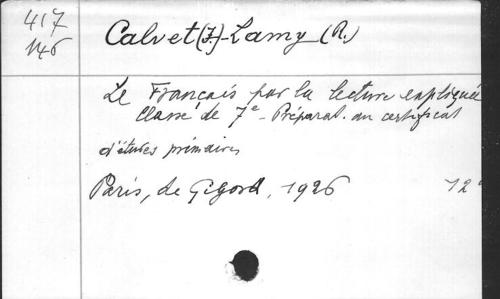 417
146
Calvet (J.)-Lamy (R.)
Le Français par la lecture expliquée
Classe de 7e - Préparat. au certificat
d'études primaires
Paris, de Gigord, 1926 12°